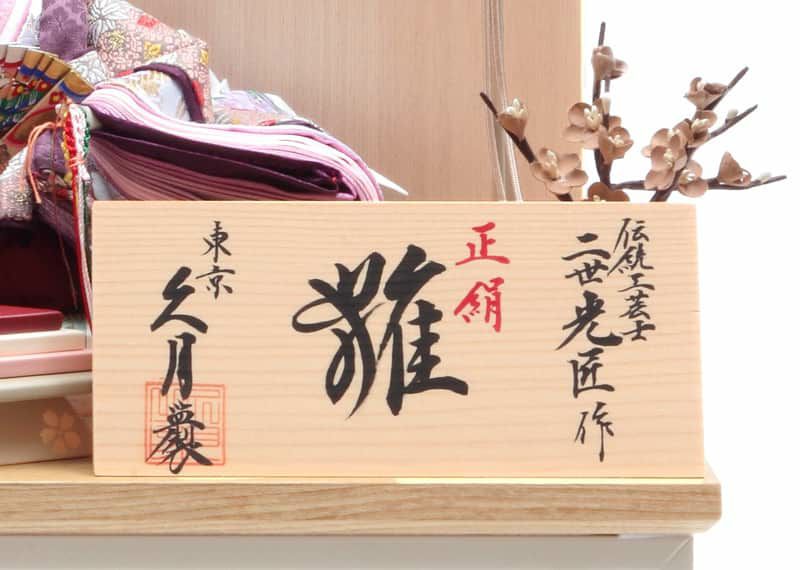 伝統工芸士
二世光匠作
正絹
雅
東京
久月製